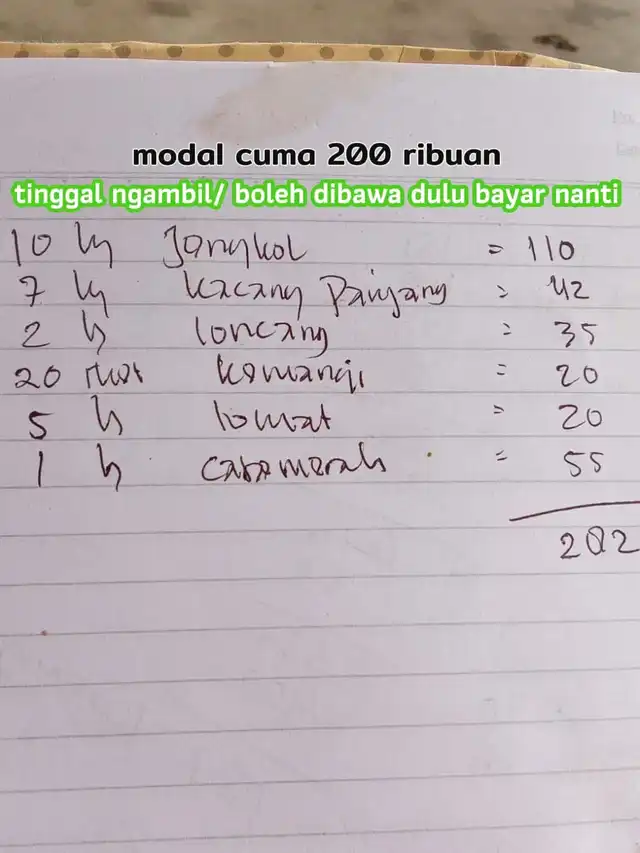 modal cuma 200 ribuan
tinggal ngambil/ boleh dibawa dulu bayar nanti
10 kg Jengkol = 110
7 kg kacang Panjang = 42
2 k loncang = 35
20 ikat kemangi = 20
5 k tomat = 20
1 k caba merah = 55
282